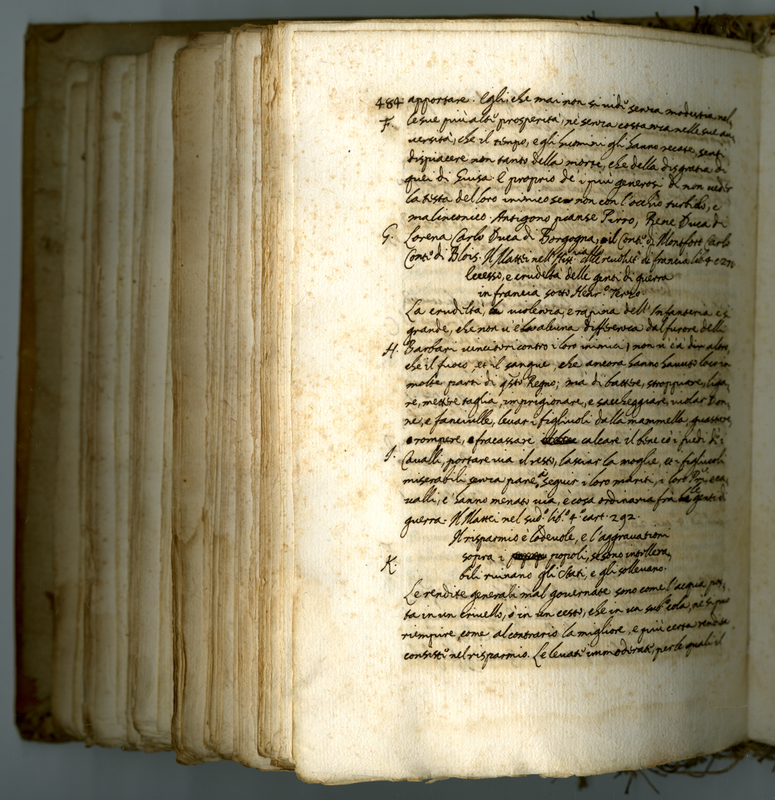 484 apportare. Egli che mai non si vidi senza modestia nel,
F. le sue più alti prosperità, nè senza costanza nelle sue au,
versità, che il tempo, e gli huomini gli hanno recate, senti
dispiacere non tanto della morte, che della disgratia di
quei di Guisa. È proprio de i più generosi di non veder
la testa del loro inimico se non con l'occhio turbido, e
malinconico. Antigono pianse Pirro, Rene Duca di
G. Lorena Carlo Duca di Borgogna, il Conte di Monfort Carlo
Conte di Blois. Il Mattei nell' delle di francia lib. 4. c.
Eccesso, e crudeltà delle genti di guerra
in francia sotto Henrº. Terzo
La crudiltà, la violenza, e rapina dell' Infanteria è sì
grande, che non v'è alcuna differenza dal furore delli
H. Barbari vincitori contro i loro inimici; non v'è da dir altro,
che il fuoco, et il sangue, che ancora hanno havuto loco in
molte parti di qsto Regno; ma di battere, stroppiare, liga,
re, mettere taglia, imprigionare, e saccheggiare, violar Don,
ne, e fanciulle, levar i figliuoli dalla mammella, guastare,
rompere, fracassare calcare il co i piedi di
I. Cavalli, portare via il resto, lasciar la moglie, et i figliuoli
miserabili senza pane, seguir i loro mariti, i loro Pri, e ca,
valli, e hanno menato via, è cosa ordinaria fra le genti di
guerra. Il Mattei nel sudº. libº. 4º. cart. 292.
Il risparmio è lodevole, e l'aggravationi
sopra i popoli, se sono intollera,
K. bili ruinano gli stati, e gli sollevano.
Le rendite generali mal governate sono come l'acqua pos,
ta in un crivello, ò in un cesto, che in un subº. cola, nè si può
riempire, come al contrario la migliore, e più certa rendita
consiste nel risparmio. Le levate immoderate, per le quali il